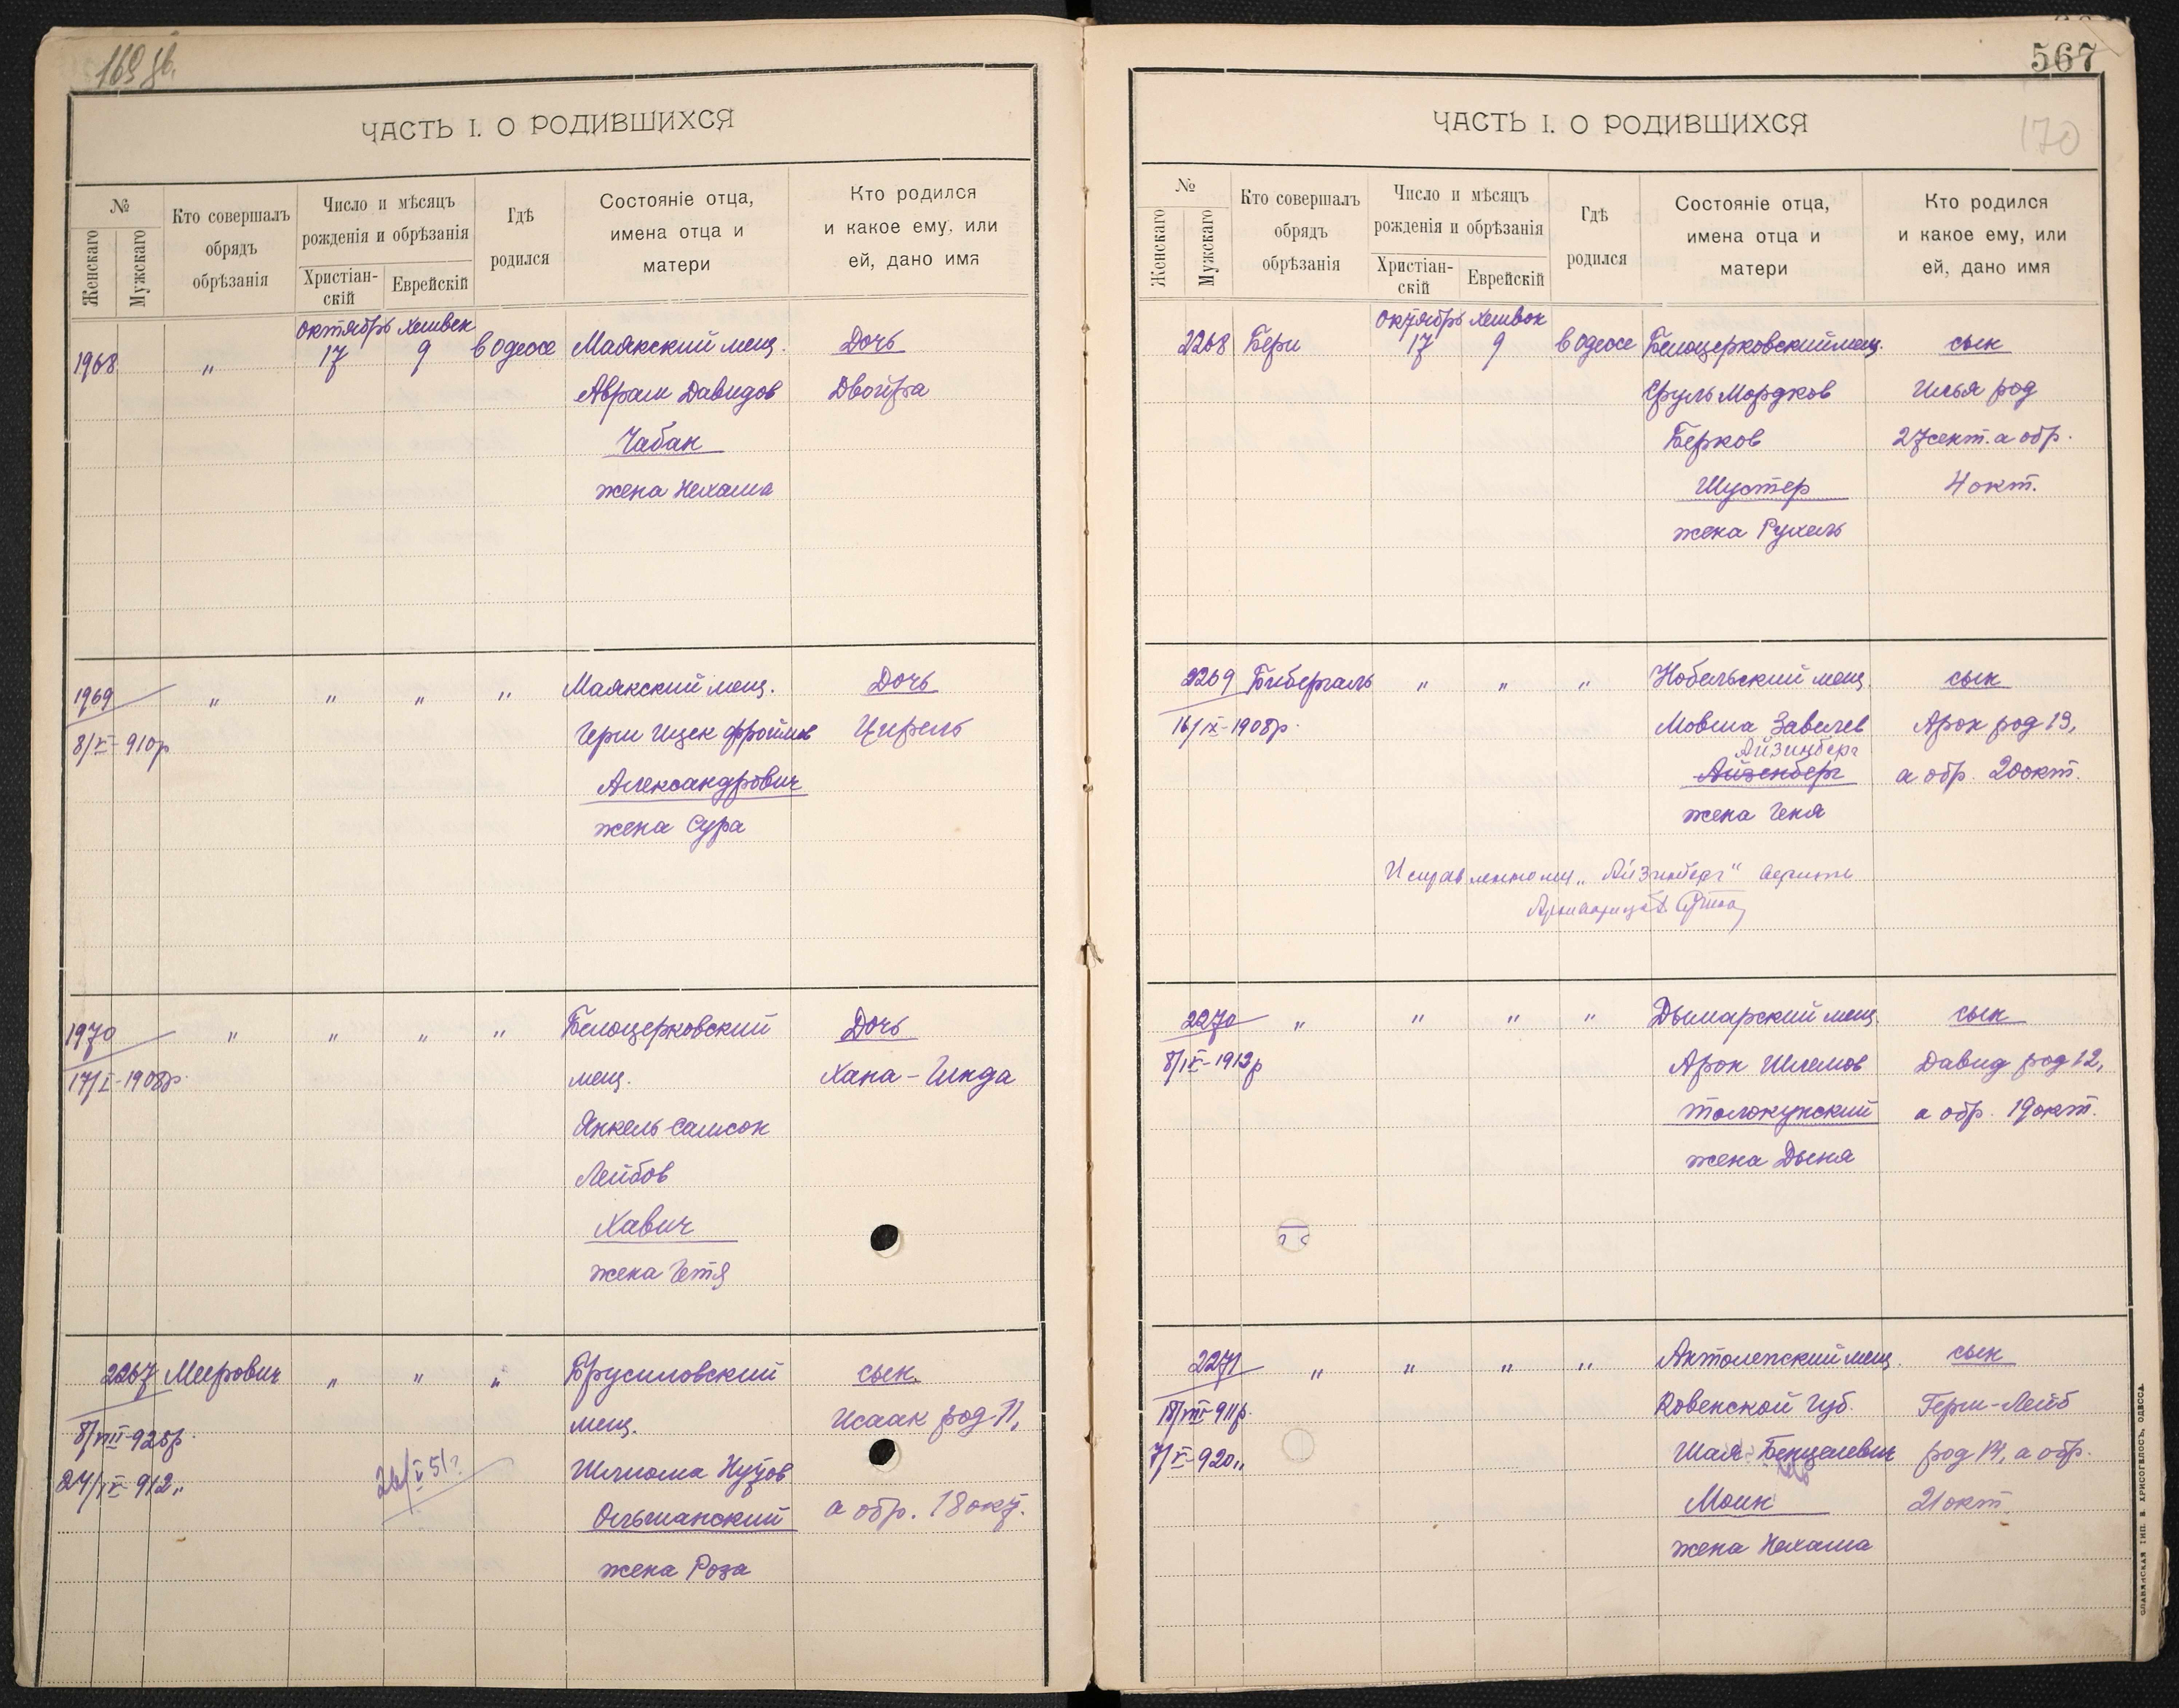 ЧАСТЬ I. О РОДИВШИХСЯ
№
Женскаго
Мужскаго
Кто совершалъ
обрядъ
обрѣзанія
Число и мѣсяцъ
рожденія и обрѣзанія
Христіан-
скій
Еврейскій
Гдѣ
родился
Состояніе отца,
имена отца и
матери
Кто родился
и какое ему, или
ей, дано имя
октябрь хешван
1968 " 17 9 в Одессе Маякский мещ. Дочь
Аврам Давидов Двойра
Чабан
жена Нехама
1969 " " " " Маякский мещ. Дочь
8/X-910р Герш Ицек Фроимов Цирель
Александрович
жена Сура
1970 " " " " Белоцерковский Дочь
17/I-1908р. мещ. Хана-Гинда
Янкель-Самсон
Лейбов
Хавич
жена Гетя
2267 Меерович " " " Брусиловский сын.
8/VII-925р. мещ. Исаак род 11,
24/IX-912" 26/V 51г. Шлиома Нутов а обр. 18 окт.
Ольшанский
жена Роза
567
170
ЧАСТЬ I. О РОДИВШИХСЯ
№
Женскаго
Мужскаго
Кто совершалъ
обрядъ
обрѣзанія
Число и мѣсяцъ
рожденія и обрѣзанія
Христіан-
скій
Еврейскій
Гдѣ
родился
Состояніе отца,
имена отца и
матери
Кто родился
и какое ему, или
ей, дано имя
октябрь хешван
2268 Бери 17 9 в Одессе Белоцерковский мещ. сын
Сруль Мордков Илья род
Берков 27 сент. а обр.
Шустер 4 окт.
жена Рухель
2269 Бибергаль " " " Нобельский мещ. сын
16/IX-1908р. Мовша Завелев Арон род 13,
Айзинберг
Айзенберг а обр. 20 окт.
жена Геня
Исправленному "Айзинберг" верить
2270 " " " " Дымарский мещ. сын
8/IX-1912р Арон Шлемов Давид род 12,
Толокунский а обр. 19 окт.
жена Дыня
2271 " " " " Антопский мещ. сын
Ковенской губ. Герш-Лейб
7/X-920" Шая Бенцелевич род 14, а обр.
Моин 21 окт.
жена Нехама
СЛАВЯНСКАЯ ТИП. Е. ХРИСОГЕЛОСЪ, ОДЕССА